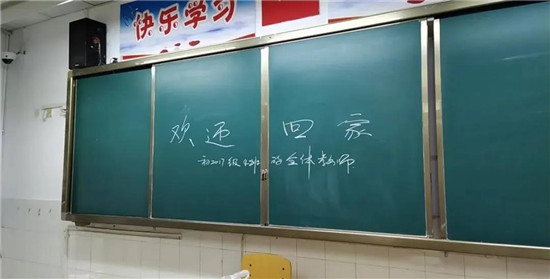 快乐学习
欢迎 回家
初2017级 的全体教师